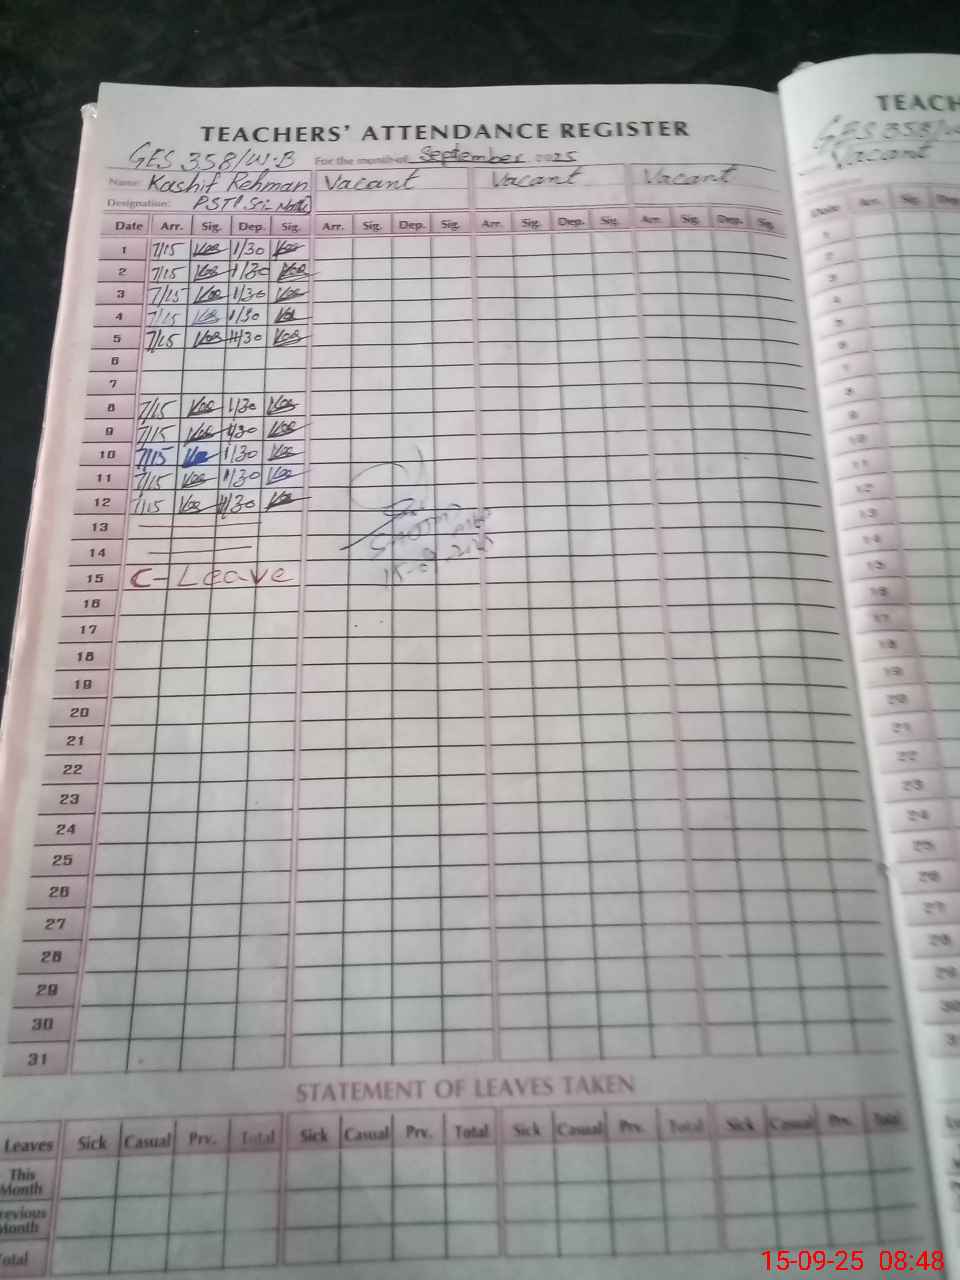 TEACHERS' ATTENDANCE REGISTER
GES 358/W.B For the month of September 2025
Name: Kashif Rehman Vacant Vacant Vacant
Designation: PST
Date Arr. Sig. Dep. Sig. Arr. Sig. Dep. Sig. Arr. Sig. Dep. Sig. Arr. Sig. Dep. Sig.
1 7/15 1/30
2 7/15 1/30
3 7/15 1/30
4 7/15 1/30
5 7/15 1/30
6
7
8 7/15 1/30
9 7/15 1/30
10 7/15 1/30
11 7/15 1/30
12 7/15 1/30
13
14
15 C-Leave
16
17
18
19
20
21
22
23
24
25
26
27
28
29
30
31
STATEMENT OF LEAVES TAKEN
Leaves Sick Casual Prv. Total Sick Casual Prv. Total Sick Casual Prv. Total Sick Casual Prv. Total
This
Month
revious
Month
otal
TEACH
GES 358/W
Vacant
Date Arr. Sig. Dep
1
2
3
4
5
6
7
8
9
10
11
12
13
14
15
16
17
18
19
20
21
22
23
24
25
26
27
28
29
30
15-09-25 08:48